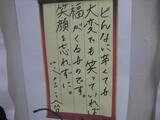 どんなに辛くても
大変でも笑っていれば
福がくるものです。
笑顔を忘れずに。